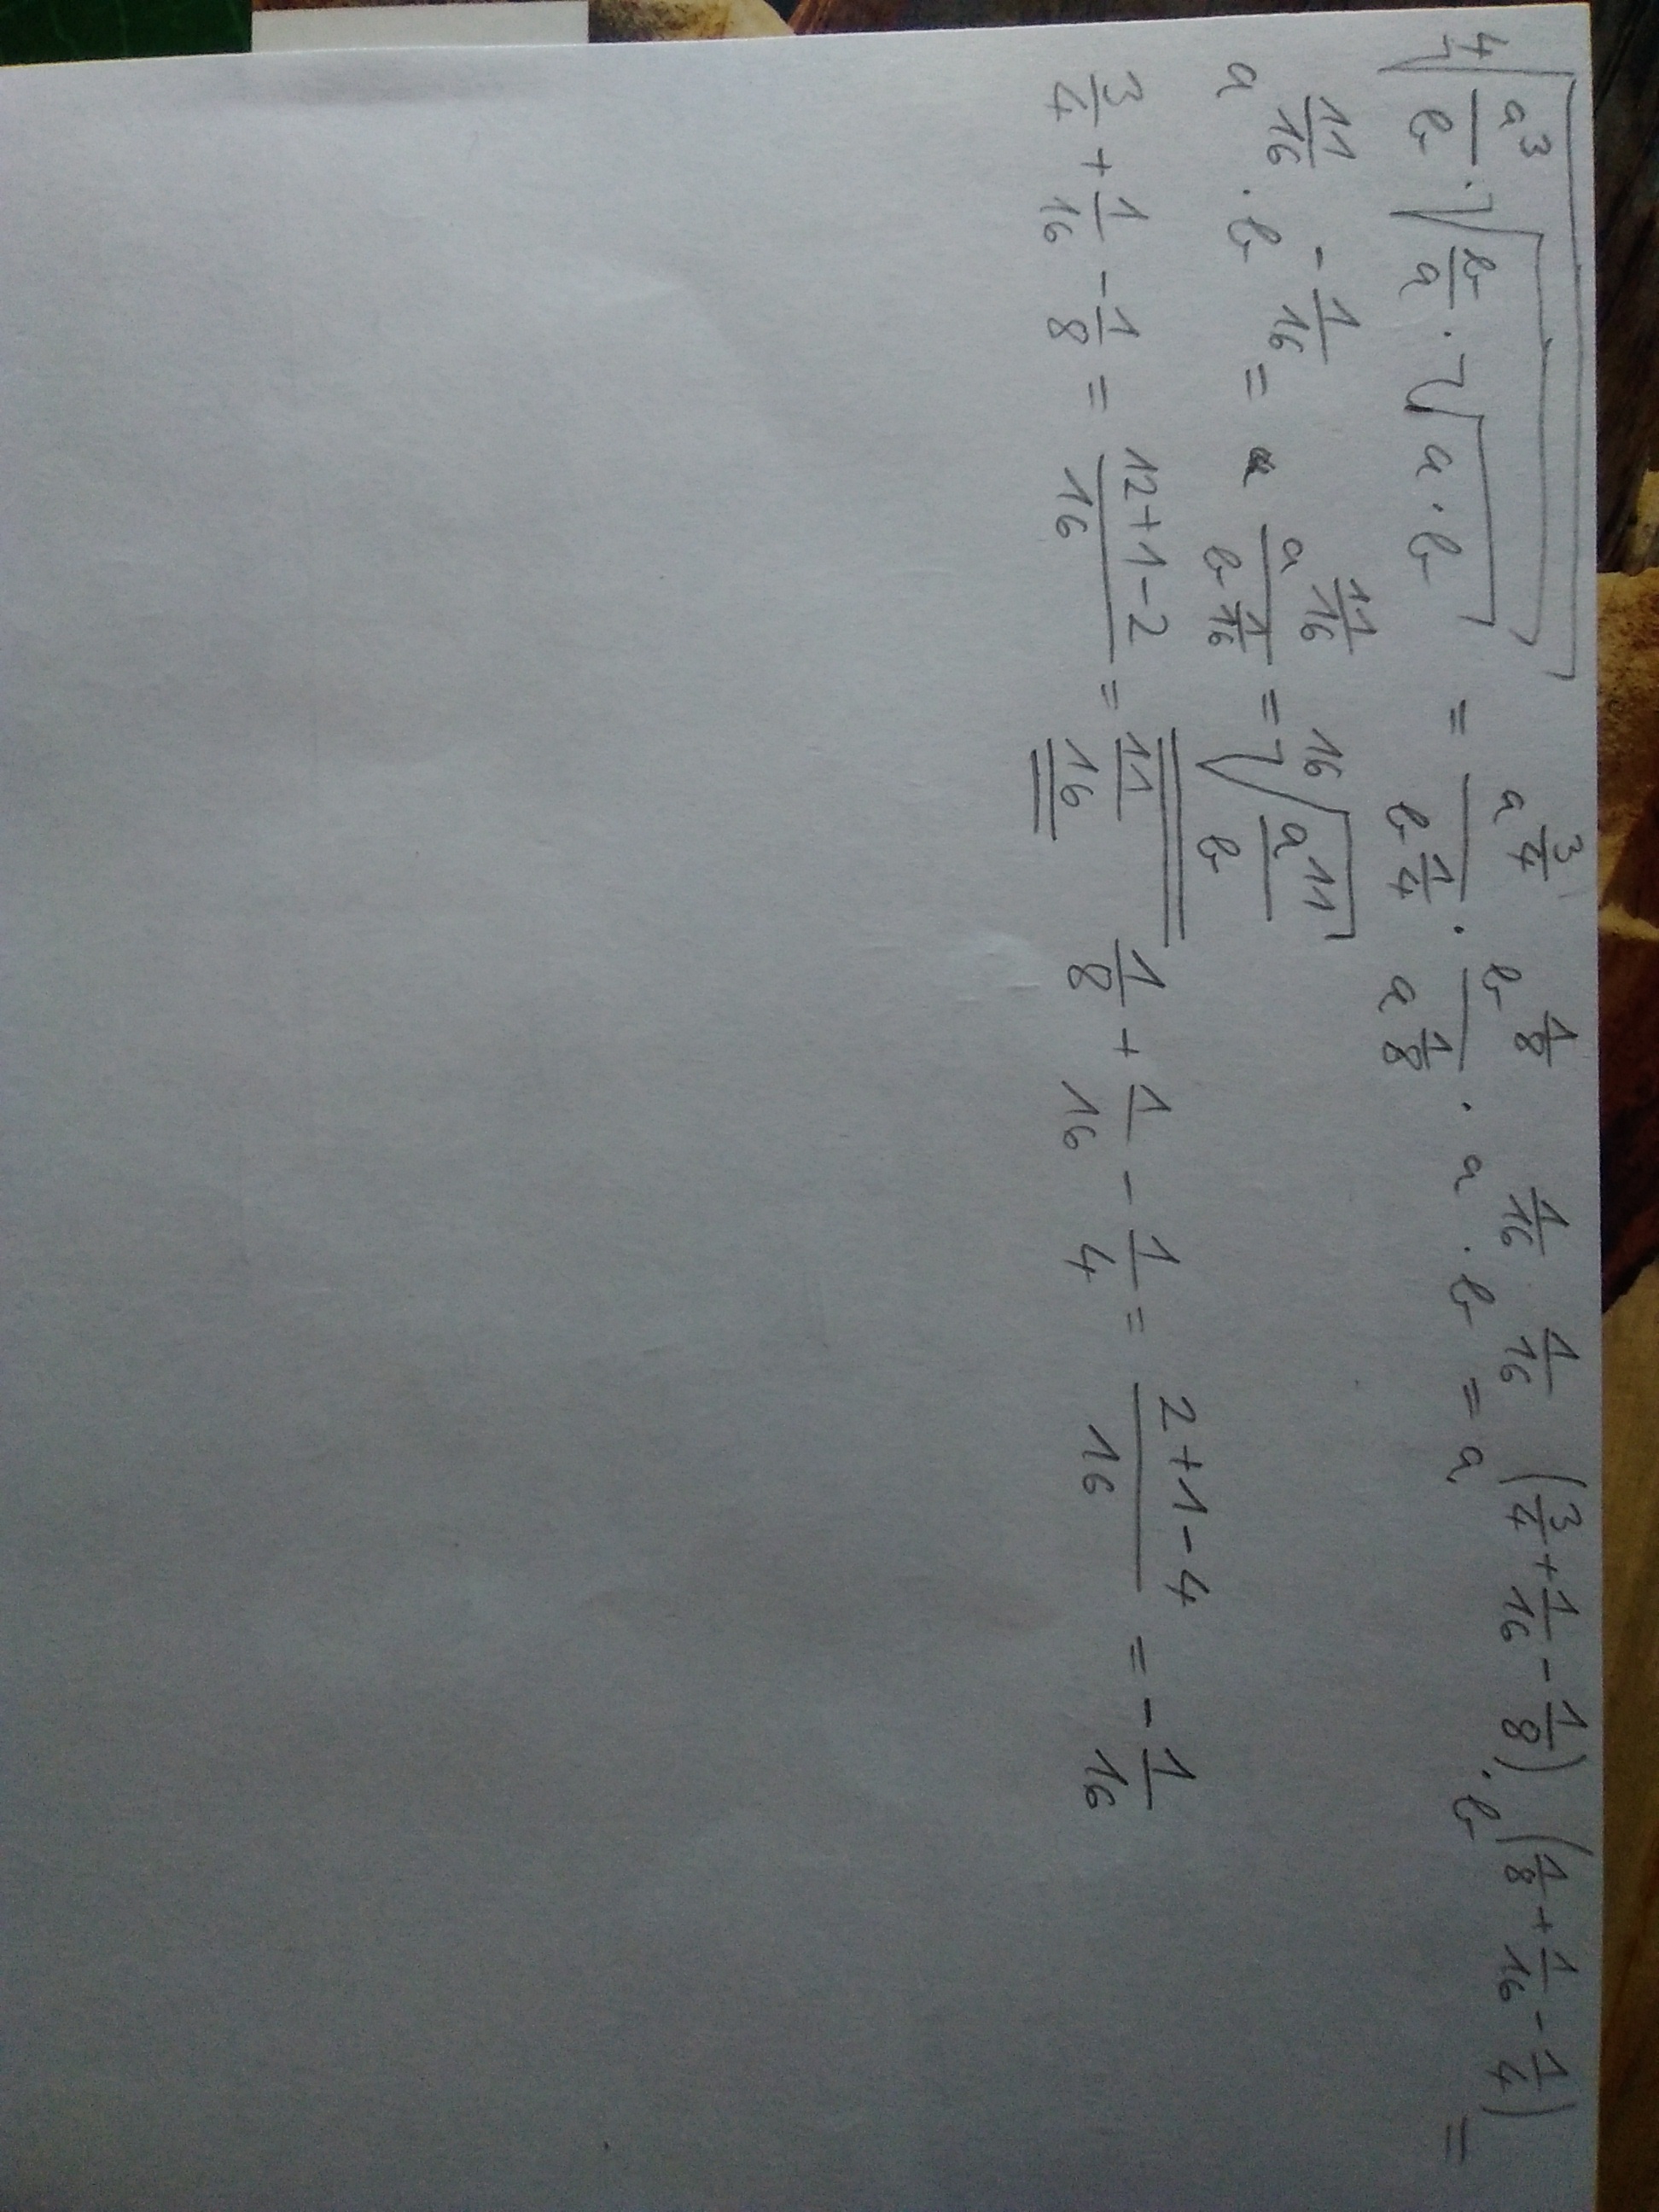 ⁴√(a³/b · √(b/a · √(a·b))) = a^(3/4)/b^(1/4) · b^(1/8)/a^(1/8) · a^(1/16) · b^(1/16) = a^(3/4 + 1/16 - 1/8) · b^(1/8 + 1/16 - 1/4) =
a^(11/16) · b^(-1/16) = a a^(11/16)/b^(1/16) = ¹⁶√(a¹¹/b)
3/4 + 1/16 - 1/8 = (12+1-2)/16 = 11/16 1/8 + 1/16 - 1/4 = (2+1-4)/16 = -1/16